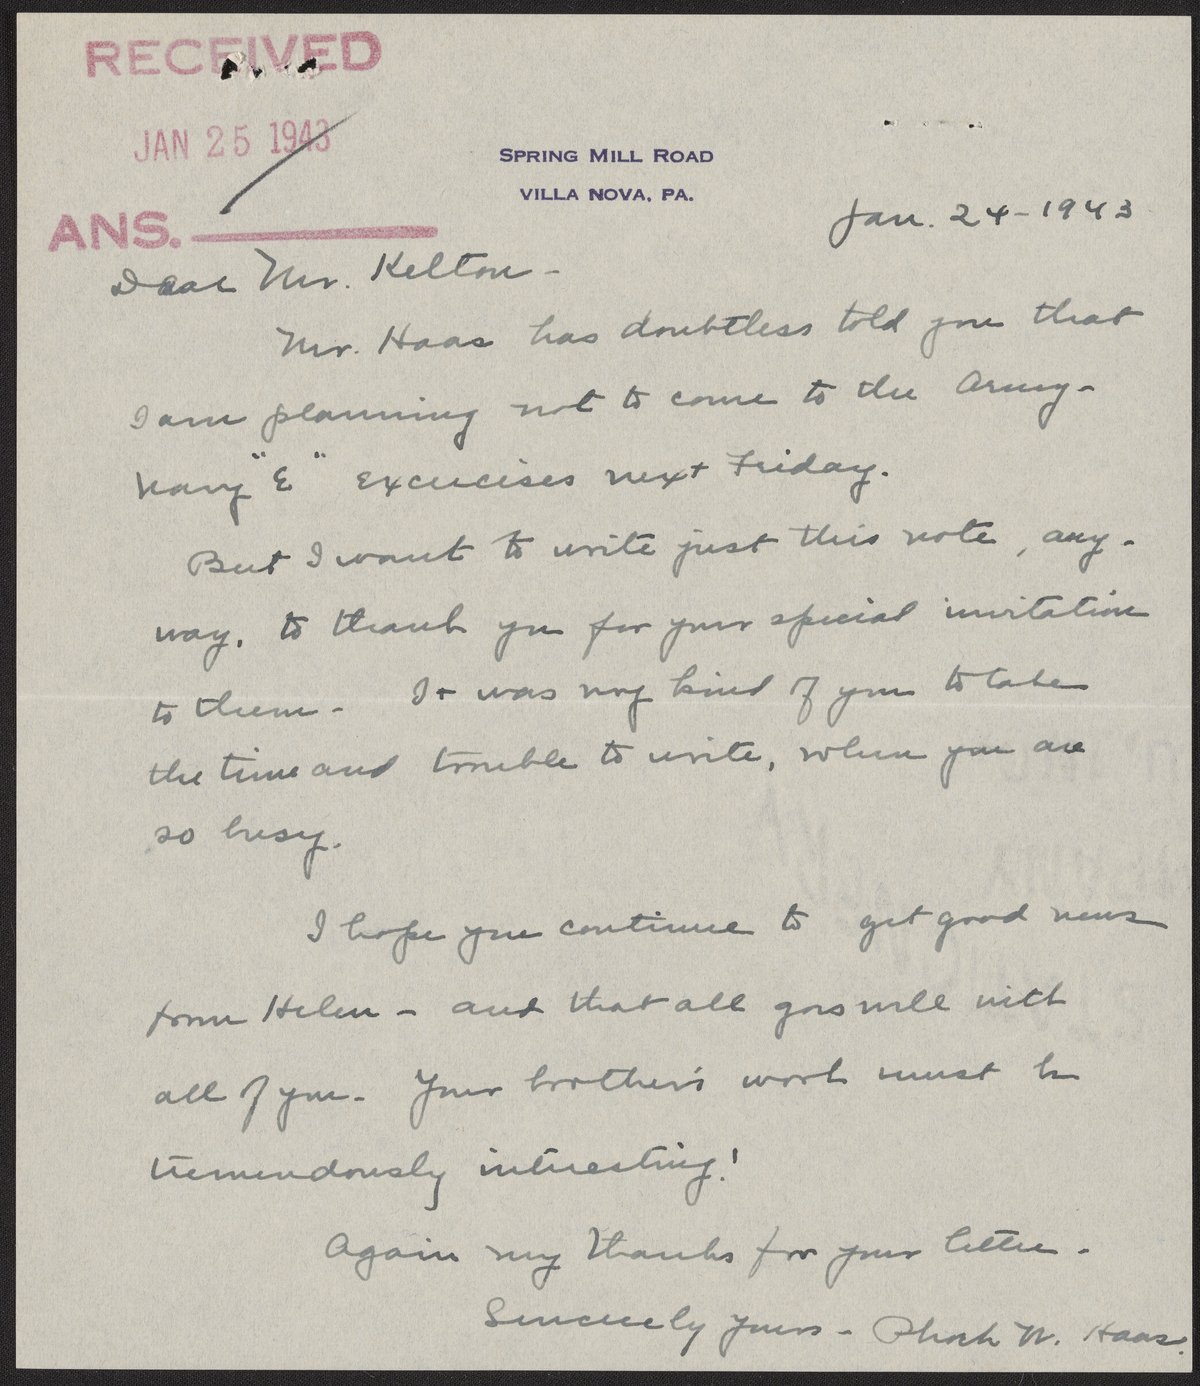 RECEIVED
JAN 25 1943
ANS.
SPRING MILL ROAD
VILLA NOVA, PA.
Jan. 24-1943
Dear Mr. Kelton -
Mr. Haas has doubtless told you that
I am planning not to come to the Army-
Navy "E" excercises next Friday.
But I want to write just this note, any-
way, to thank you for your special invitation
to them - It was very kind of you to take
the time and trouble to write, when you are
so busy.
I hope you continue to get good news
from Helen - and that all goes well with
all of you - Your brother's work must be
tremendously interesting!
Again my thanks for your letter -
Sincerely yours - Phoebe W. Haas.